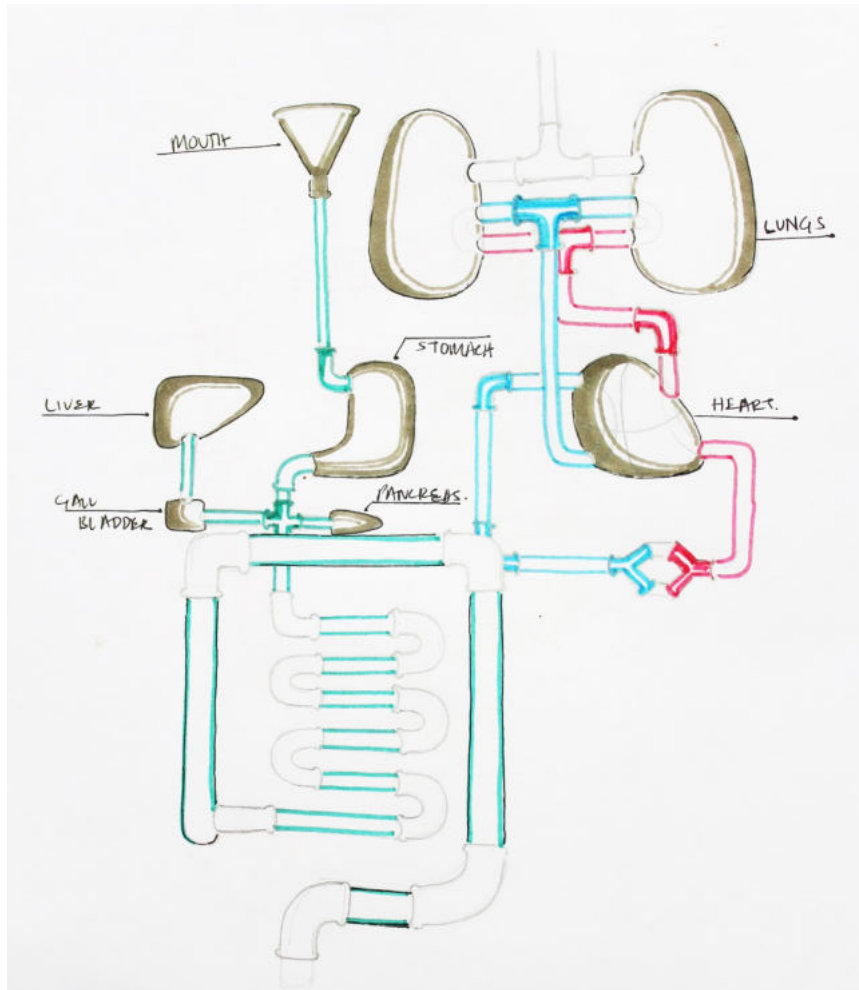 MOUTH
LUNGS
STOMACH
LIVER
HEART.
GALL
BLADDER
PANCREAS.